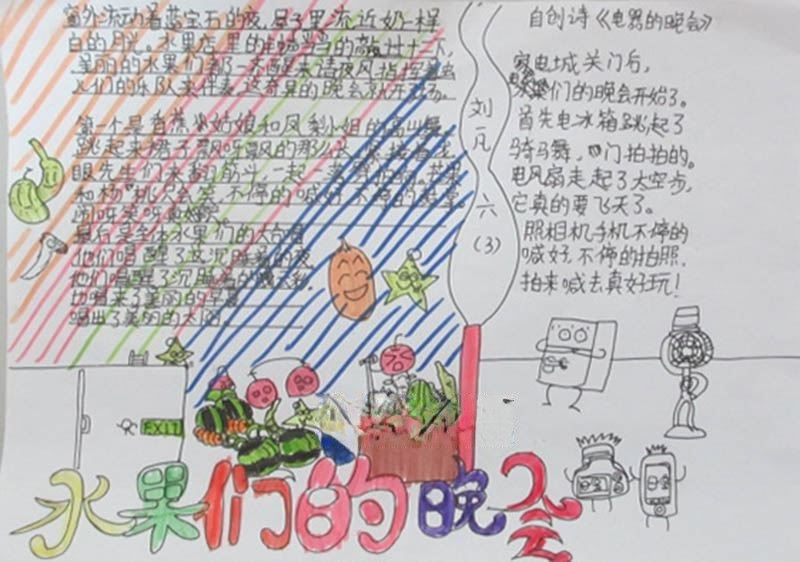 窗外流动着蓝宝石的夜,屋子里流近奶一样
白的月光。水果店里的钟当当的敲过十一下,
美丽的水果们都一齐醒来请夜风指挥
们的乐队来伴奏,这奇异的晚会就开场。
第一个是香蕉姑娘和凤梨小姐的高山舞
跳起来裙子飘呀飘的那么
眼先生们来翻筋斗,一起一
和杨桃只会笑,不停的喊好,不停的鼓掌
闹呀笑呀真好玩
最后是全体水果们的大合唱
他们唱醒了这沉睡着的夜
他们唱醒了沉睡着的
也唱来了美丽的早晨
唱出了美丽的太阳。
刘凡 六(3)
自创诗《电器的晚会》
家电城关门后,
们的晚会开始了。
首先电冰箱跳起了
骑马舞,门拍拍的。
电风扇走起了太空步,
它真的要飞天了。
照相机手机不停的
喊好,不停的拍照,
拍来喊去真好玩!
EXIT
水果们的晚会